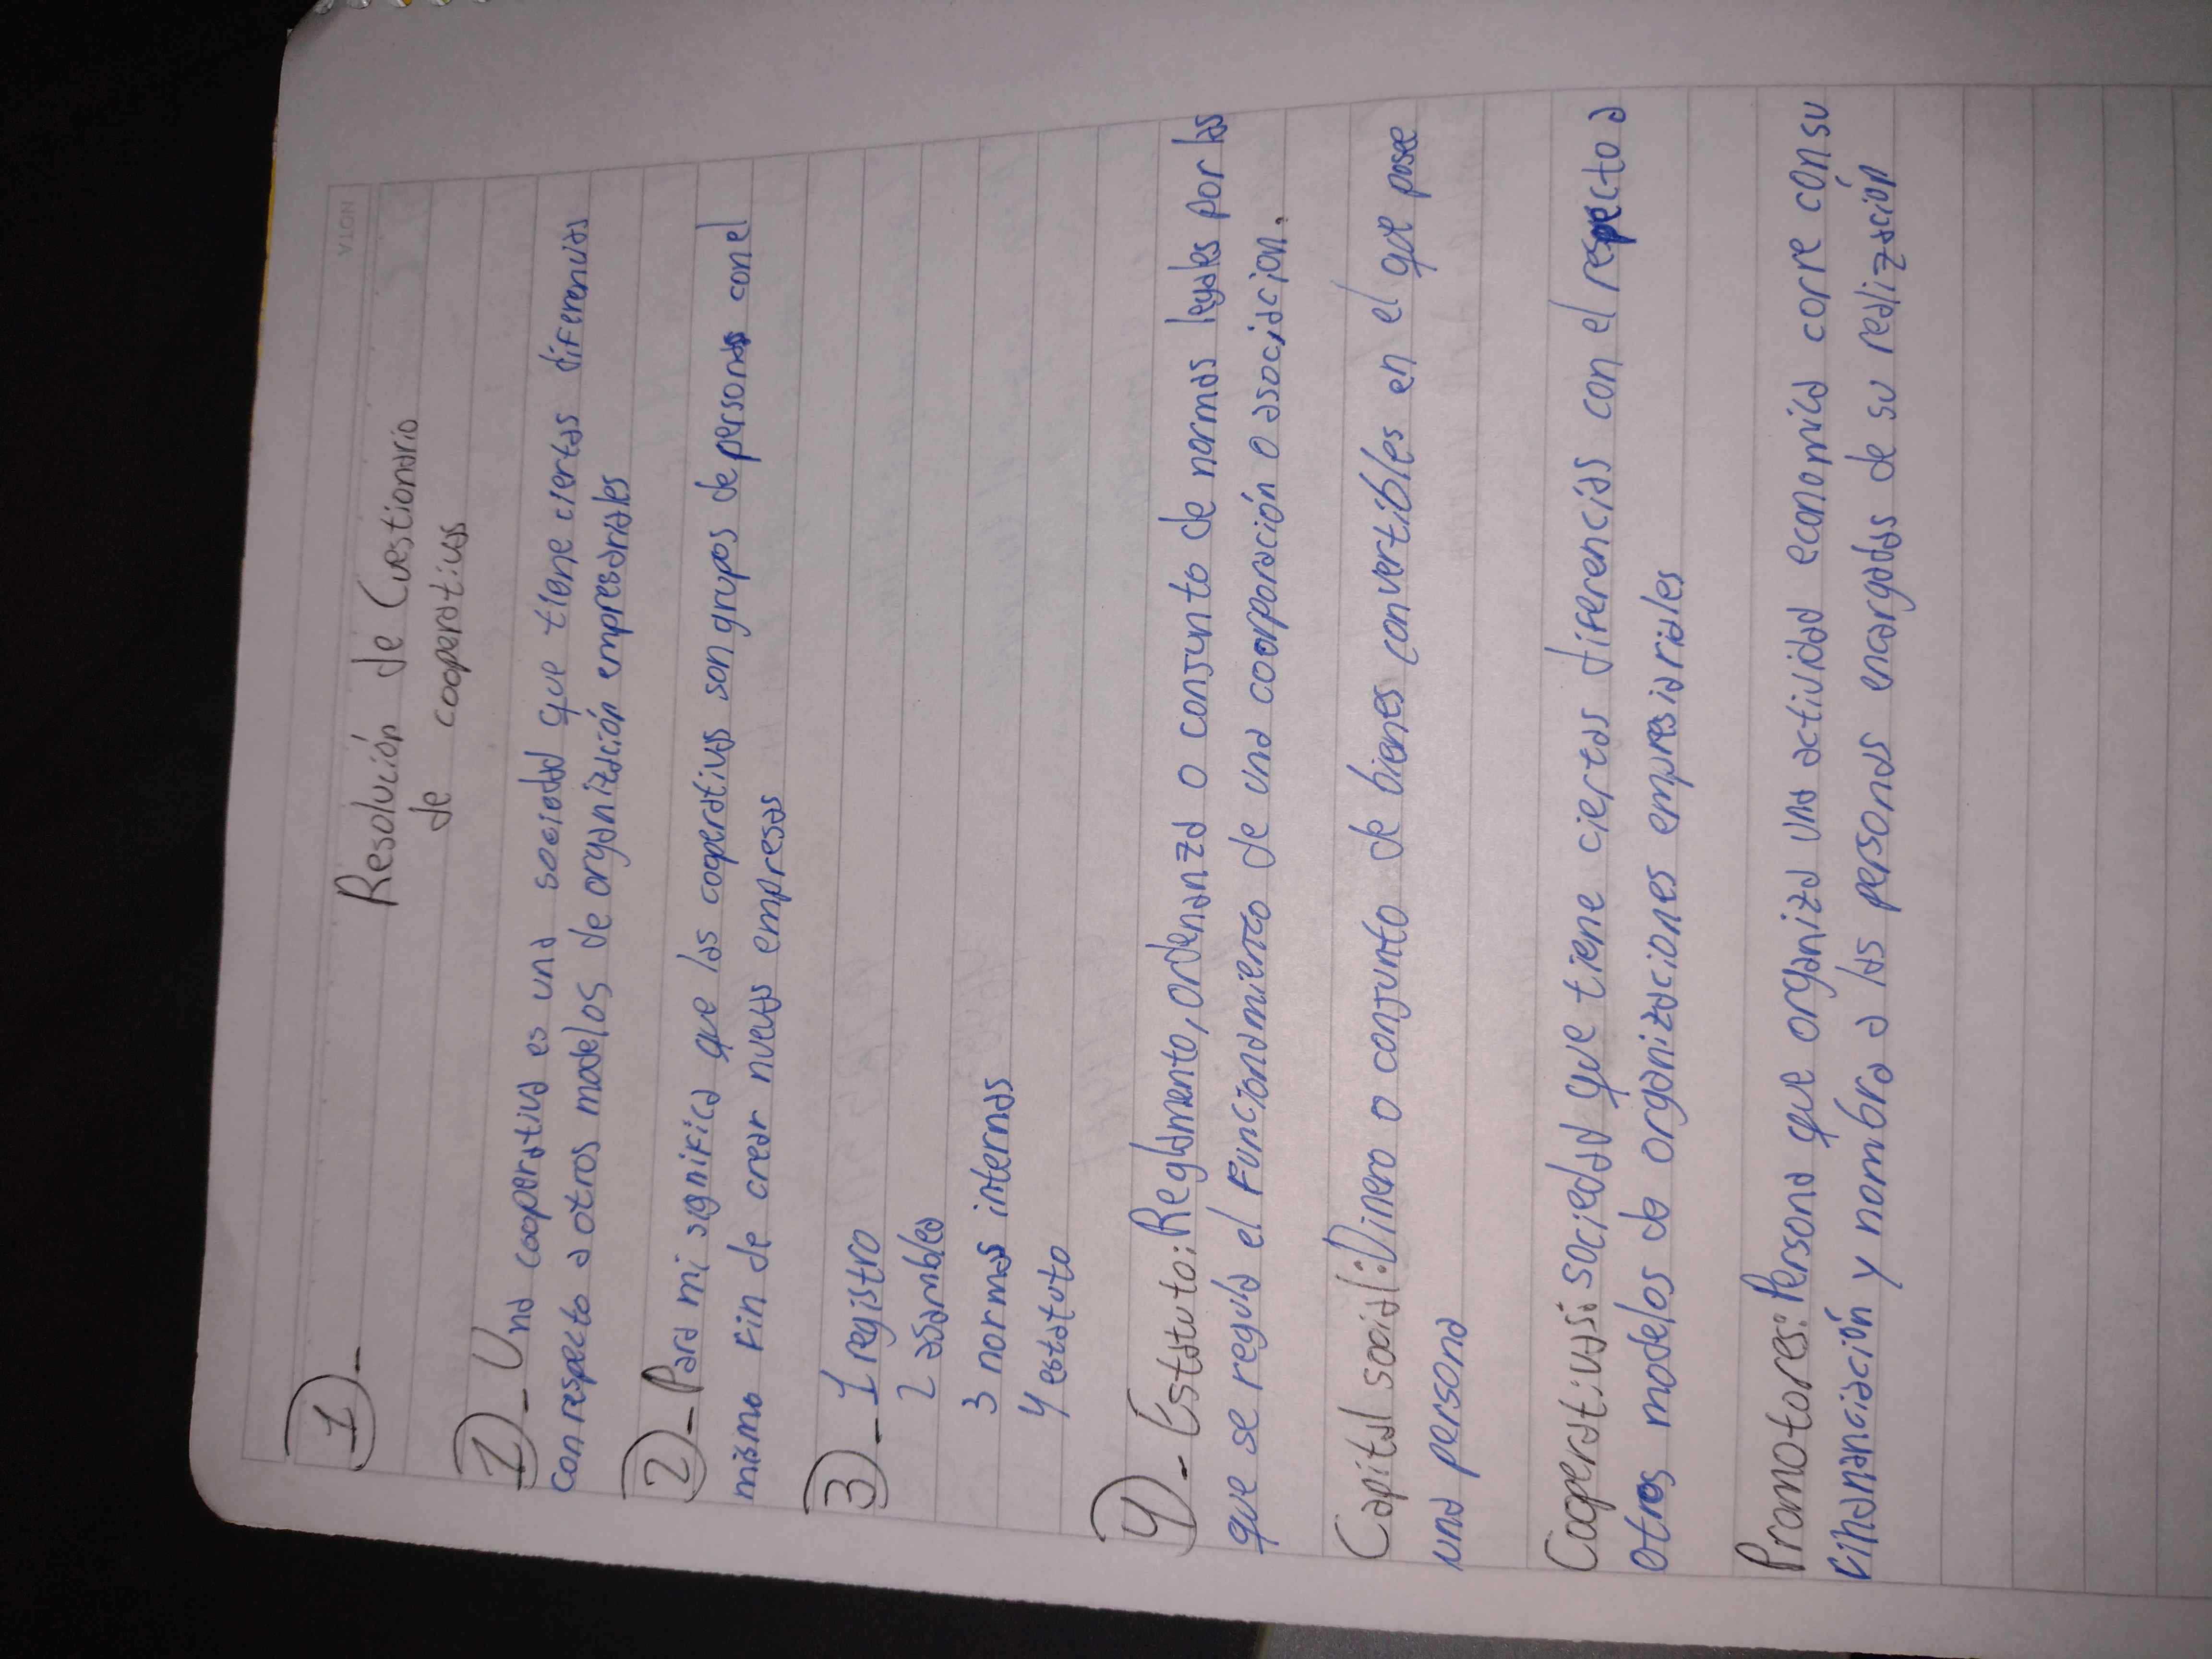 NOTA
1)-
Resolución de Cuestionario
de cooperativas
1)- Una cooperativa es una sociedad que tiene ciertas diferenias
con respecto a otros modelos de organización empresariales
2)- Para mi significa que las cooperativas son grupos de personas con el
mismo fin de crear nuevas empresas
3)- 1 registro
2 asamblea
3 normas internas
4 estatuto
4)- Estatuto: Reglamento, ordenanza o conjunto de normas legales por las
que se regula el funcionamiento de una coorporación o asociacion.
Capital social: Dinero o conjunto de bienes convertibles en el que posee
una persona
Cooperativas: sociedad que tiene ciertas diferencias con el respecto a
otros modelos de organizaciones empresiariales
Promotores: Persona que organiza una actividad economica corre con su
finanaciación y nombra a las personas encargadas de su realización